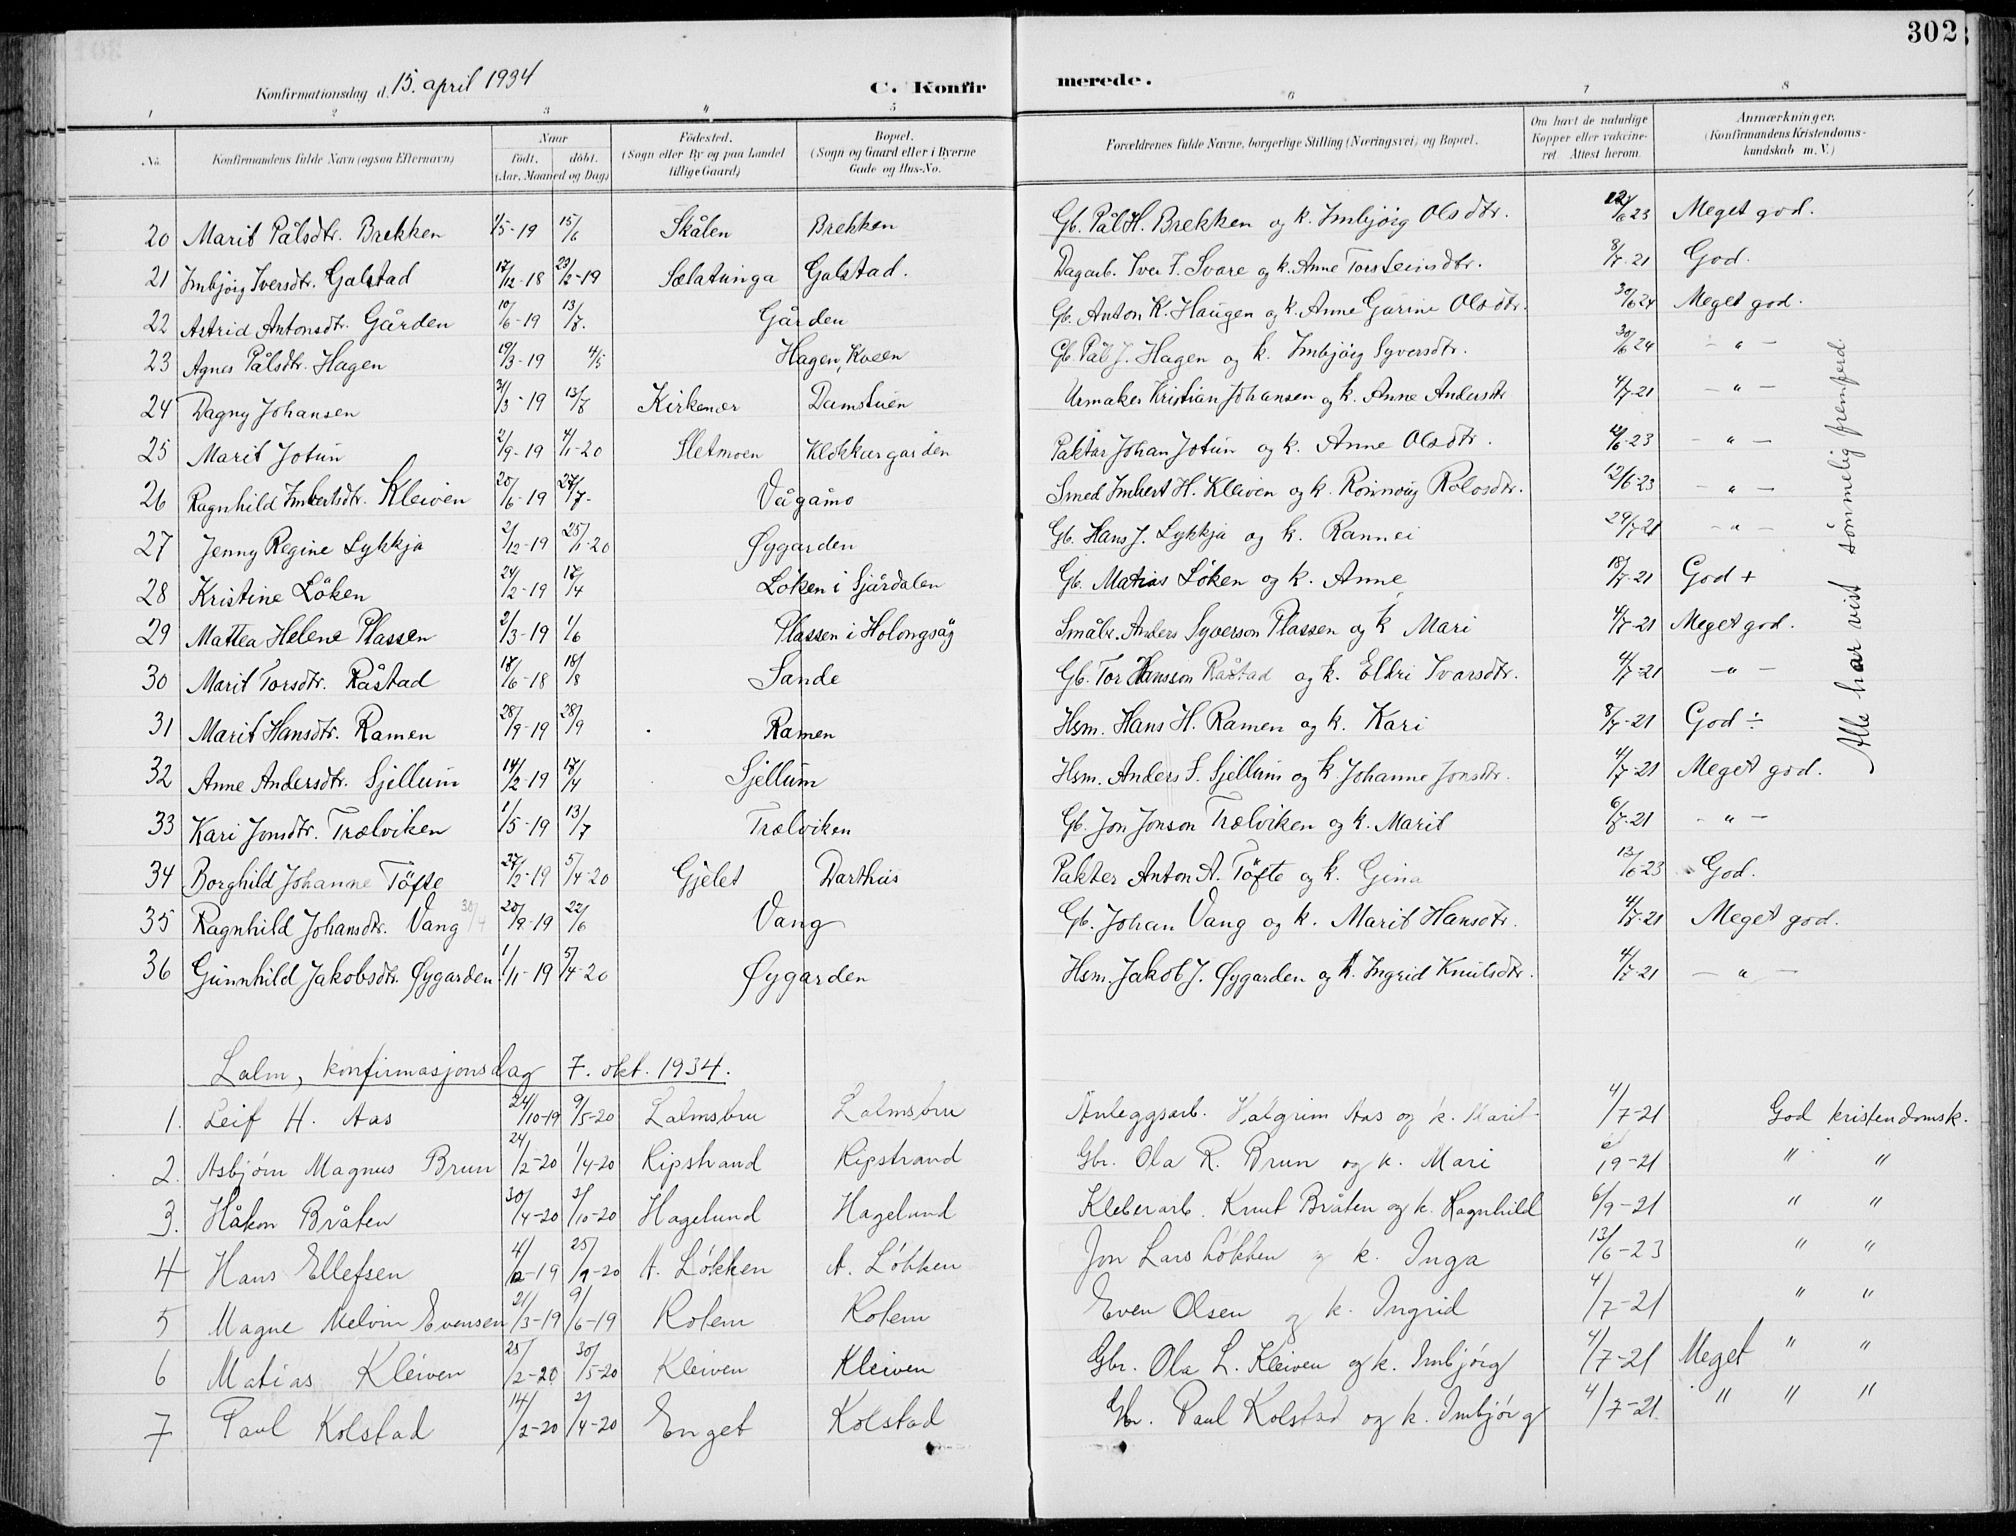 302
Konfirmationsdag d. 15. april 1934 C. Konfirmerede.
1 2 3 4 5 6 7 8
No. Konfirmandens fulde Navn (ogsaa Efternavn) Naar født. døbt. (Aar, Maaned og Dag) Födested. (Sogn eller By og paa Landet tillige Gaard) Bopæl. (Sogn og Gaard eller i Byerne Gade og Hus-No. Forældrenes fulde Navne, borgerlige Stilling (Næringsvei) og Bopæl. Om havt de naturlige Kopper eller vaccineret Attest herom. Anmærkninger. (Konfirmandens Kristendomskundskab m. V.)
20 Marit Pålsdtr. Brekken 1/5-19 15/6 Skålen Brekken Gb. Pål H. Brekken og k. Imbjörg Olsdtr. 12/6 23 Meget god.
21 Imbjörg Iversdtr. Galstad 17/12-18 23/2-19 Sælatunga Galstad. Dagarb. Iver T. Svare og k. Anne Torsteinsdtr. 8/7-21 God.
22 Astrid Antonsdtr. Gården 10/6-19 13/7. Gården Gb. Anton K. Haugen og k. Anne Gurine Olsdtr. 30/6 24 Meget god.
23 Agnes Pålsdtr. Hagen 19/3-19 4/5 Hagen, Kveen Gb. Pål J. Hagen og k. Imbjörg Syversdtr. 30/6 24 – " –
24 Dagny Johansen 31/3-19 13/7 Kirkenær Damstuen Urmaker Kristian Johansen og k. Anne Andersdtr 4/7-21 – " –
25 Marit Jotun 2/9-19 4/1-20 Sletmoen Klokkargarden Paktar Johan Jotun og k. Anne Olsdtr. 12/6-23 – " –
26 Ragnhild Imbertsdtr. Kleiven 20/6-19 27/7- Vågåmo Smed Imbert H. Kleiven og k. Rönnoug Rolvsdtr. 12/6-23 – " –
27 Jenny Regine Lykkja 2/12-19 25/1-20 Øygarden Gb. Hans J. Lykkja og k. Rannei 29/7 21 – " –
28 Kristine Löken 24/2-19 17/4 Löken i Sjårdalen Gb. Matias Löken og k. Anne 18/7-21 God +
29 Mattea Helene Plassen 2/3-19 1/6 Plassen i Holongsåg Småbr. Anders Syverson Plassen og k Mari 4/7-21 Meget god.
30 Marit Torsdtr. Råstad 17/6-18 18/8 Sande Gb. Tor Hansson Råstad og k. Eldri Ivarsdtr. 4/7-21 – " –
31 Marit Hansdtr. Ramen 28/9-19 28/9 Ramen Hsm. Hans H. Ramen og k. Kari 8/7-21 God ÷
32 Anne Andersdtr. Sjellum 14/2-19 17/4 Sjellum Hsm. Anders S. Sjellum og k. Johanne Jonsdtr. 4/7-21 Meget god.
33 Kari Jonsdtr. Trælviken 1/5-19 13/7 Trælviken Gb. Jon Jonson Trælviken og k. Marit 6/7-21 – " –
34 Borghild Johanne Töfte 27/2-19 5/4-20 Gjelet Darthus Pakter Anton A. Töfte og k. Gina 12/6-23 God.
35 Ragnhild Johansdtr. Vang 20/9-19 22/6 Vang Gb. Johan Vang og k. Marit Hansdtr. 4/7-21 Meget god.
36 Gunnhild Jakobsdtr. Øygarden 1/11-19 5/4-20 Øygarden Hsm. Jakob J. Øygarden og k. Ingrid Knutsdtr. 4/7-21 – " –
Alle har vist sömmelig fremferd.
Lalm, konfirmasjonsdag 7. okt. 1934.
1. Leif H. Aas 24/10-19 9/5-20 Lalmsbru Lalmsbru Anleggsarb. Halgrim Aas og k. Marit 4/7-21 God kristendomsk.
2. Asbjörn Magnus Brun 24/2-20 1/4-20 Ripstrand Ripstrand Gbr. Ola R. Brun og k. Mari 6/9-21 " "
3. Håkon Bråten 30/4-20 3/10-20 Hagelund Hagelund Kleberarb. Knut Bråten og k. Ragnhild 6/9-21 " "
4 Hans Ellefsen 4/12-19 25/9-20 A. Lökken A. Lökken Jon Lars Lökken og k. Inga 13/6-23 " "
5 Magne Melvin Evensen 21/3-19 9/6-19 Rolem Rolem Even Olsen og k. Ingrid 4/7-21 " "
6 Matias Kleiven 25/2-20 30/5-20 Kleiven Kleiven Gbr. Ola L. Kleiven og k. Imbjörg 4/7-21 Meget " "
7 Paul Kolstad 14/2-20 2/4-20 Enget Kolstad Gbr. Paul Kolstad og k. Imbjörg 4/7-21. " " "